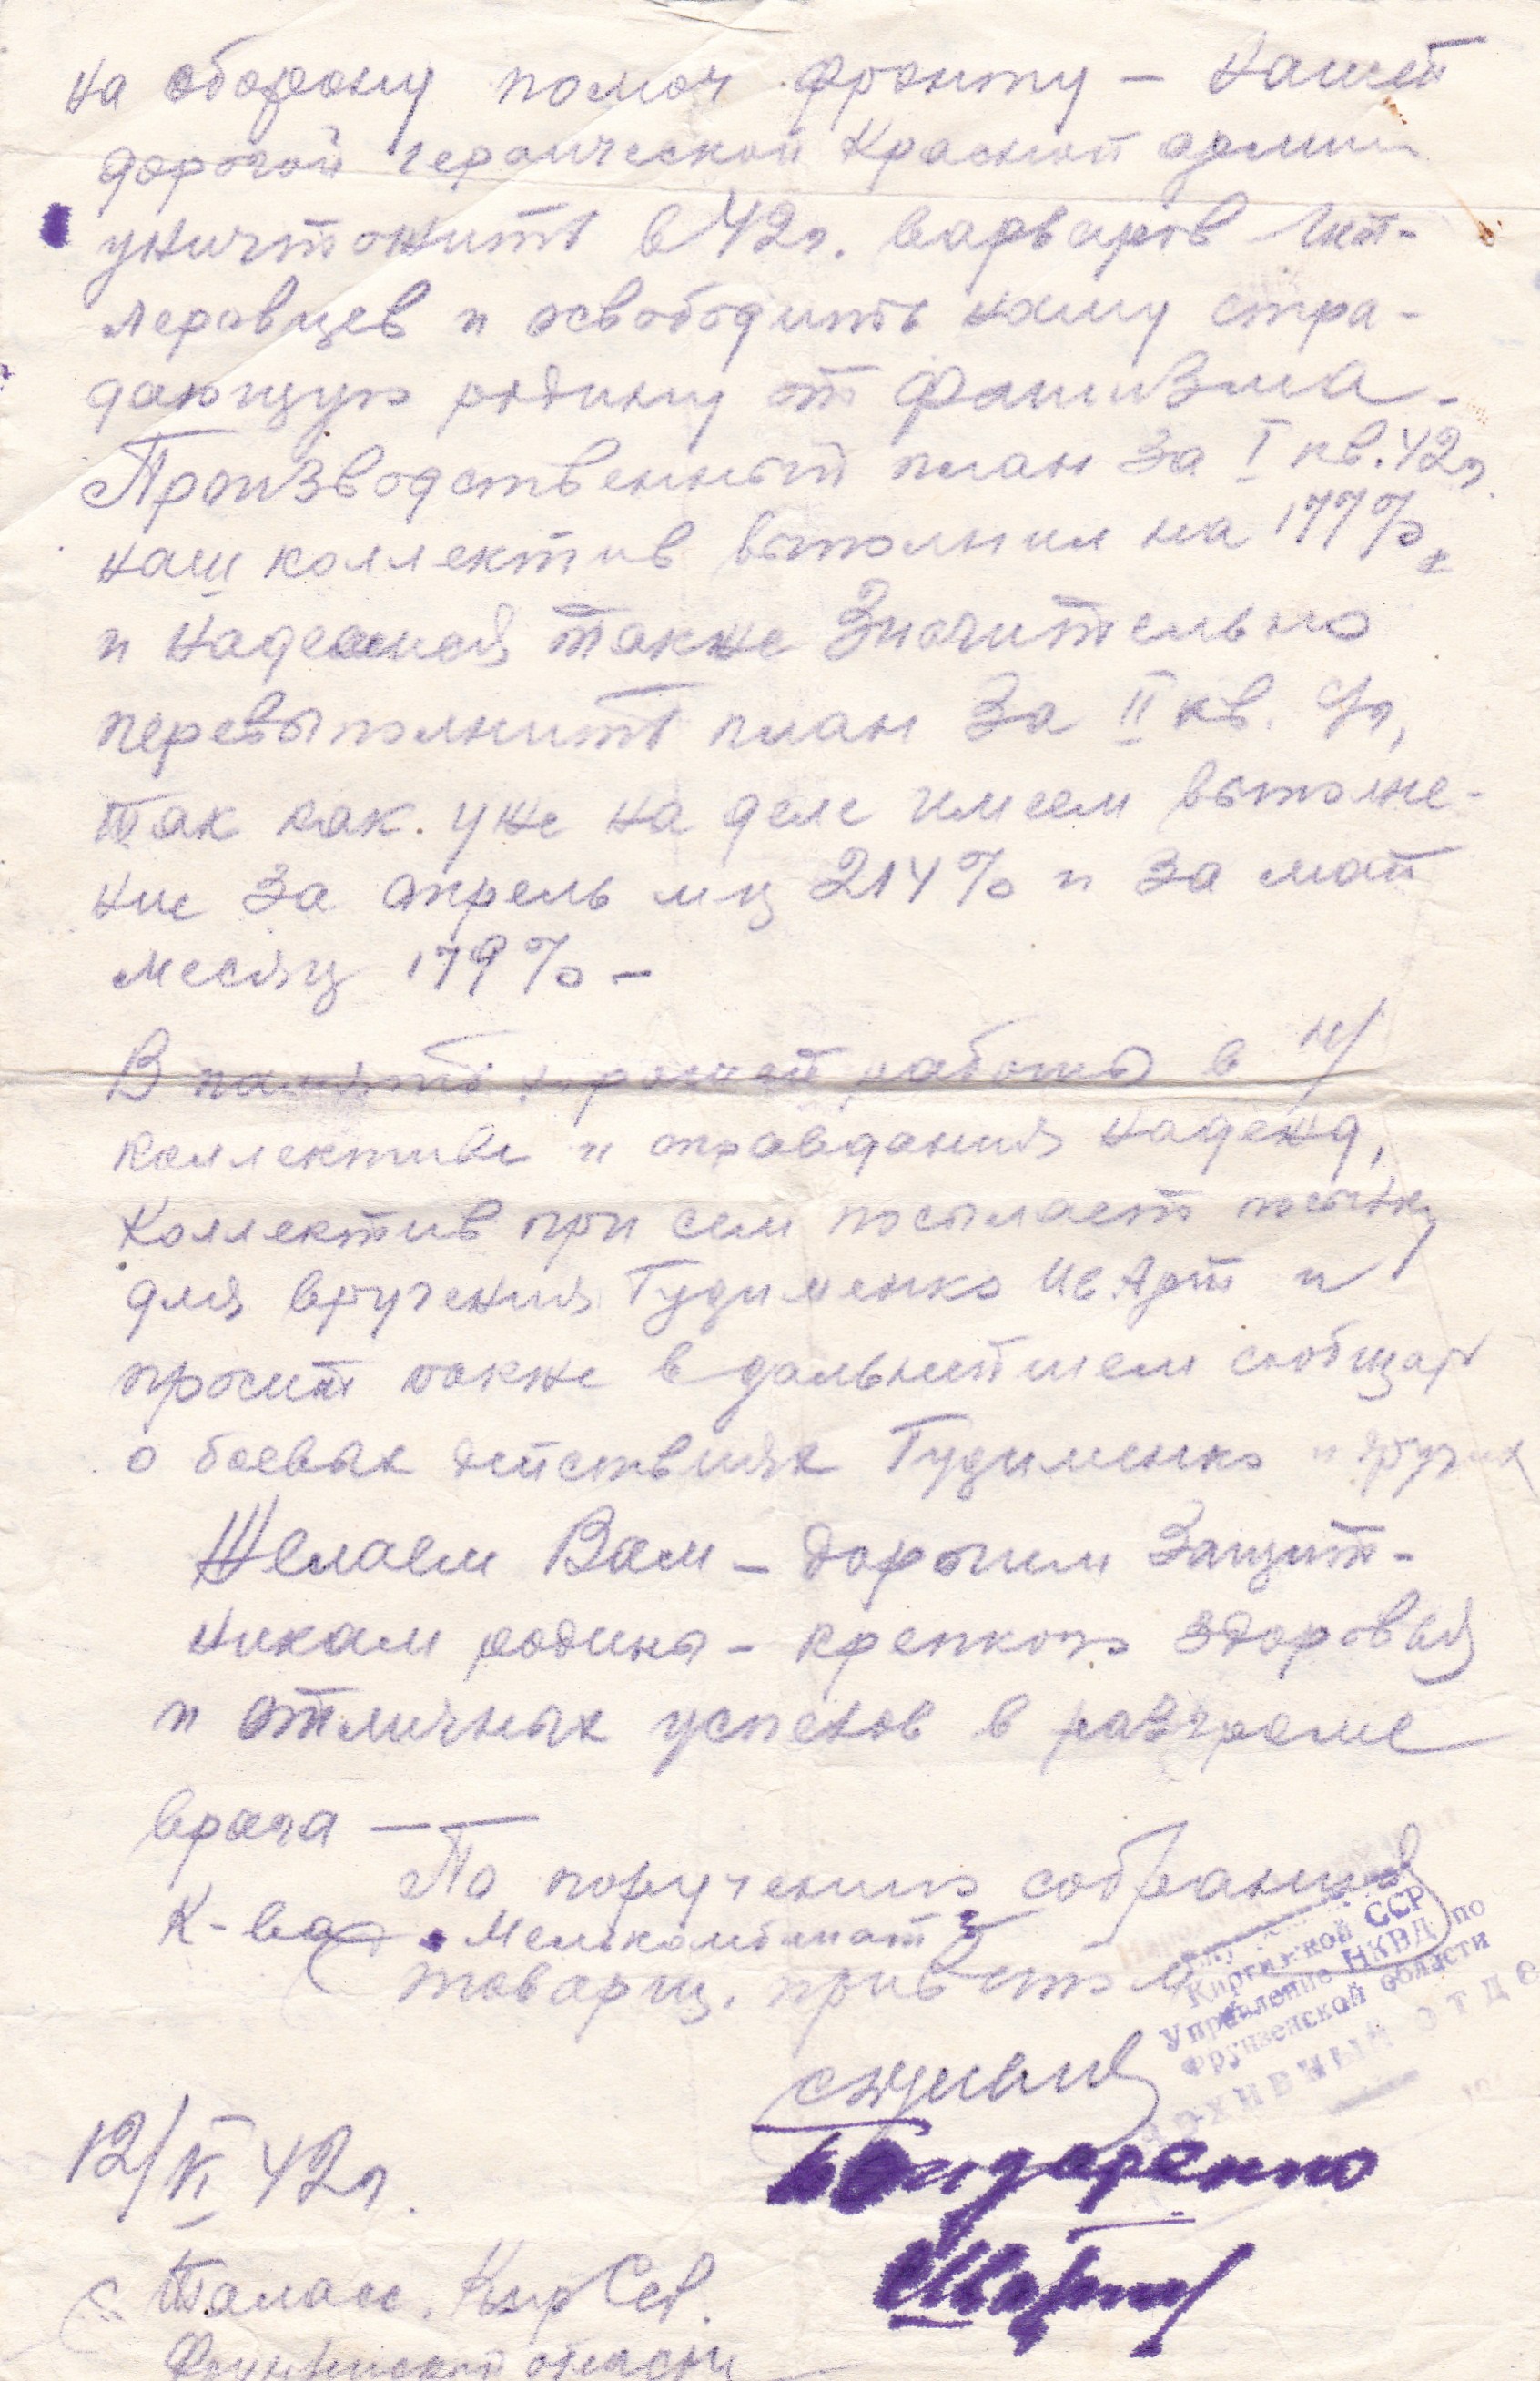 на оборону помоч фронту – нашей
дорогой героической Красной армии
уничтожить в 42г. варваров гит-
леровцев и освободить нашу стра-
дающую родину от фашизма.
Производственный план за I кв. 42г.
наш коллектив выполнил на 177%,
и надеемся также значительно
перевыполнить план за II кв.
так как уже на деле имеем выполне-
ние за апрель м-ц 214% и за май
месяц 179% –
В память хорошей работы в н/
коллективе и оправдания надежд,
коллектив при сем посылает посылку
для вручения Гудименко и
просит также в дальнейшем сообщать
о боевых действиях Гудименко и других
Желаем Вам – дорогим защит-
никам родины – крепкого здоровья
и отличных успехов в разгроме
врага –
По поручению собрания
к-ва Мелькомбината
товарищ. приветом
Бондаренко
12/VI 42г.
с. Талас. Кир ССР.
Фрунзенской области
Киргизской ССР
Управление НКВД по
Фрунзенской области
АРХИВНЫЙ ОТДЕ